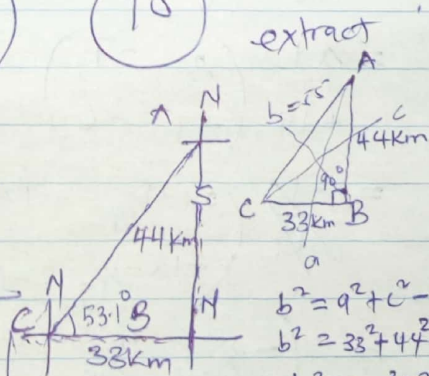 10
extract
A
b=55
c
44km
90°
C
33km
B
a
N
A
S
44km
N
N
C
53.1°
B
33km
b² = a² + c² -
b² = 33² + 44²